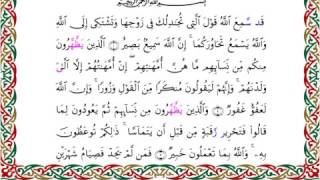 بِسْمِ اللَّهِ الرَّحْمَٰنِ الرَّحِيمِ
قَد سَّمِعَ ٱللَّهُ قَوْلَ ٱلَّتِى تُجَٰدِلُكَ فِى زَوْجِهَا وَتَشْتَكِىٓ إِلَى ٱللَّهِ
وَٱللَّهُ يَسْمَعُ تَحَاوُرَكُمَآ ۚ إِنَّ ٱللَّهَ سَمِيعٌۢ بَصِيرٌ ۝١ ٱلَّذِينَ يَظَّهَّرُونَ
مِنكُم مِّن نِّسَآئِهِم مَّا هُنَّ أُمَّهَٰتِهِمْ ۖ إِنْ أُمَّهَٰتُهُمْ إِلَّا ٱلَّٰٓـِٔى
وَلَدْنَهُمْ ۚ وَإِنَّهُمْ لَيَقُولُونَ مُنكَرًا مِّنَ ٱلْقَوْلِ وَزُورًا ۚ وَإِنَّ ٱللَّهَ
لَعَفُوٌّ غَفُورٌ ۝٢ وَٱلَّذِينَ يَظَّهَّرُونَ مِن نِّسَآئِهِمْ ثُمَّ يَعُودُونَ لِمَا
قَالُوا۟ فَتَحْرِيرُ رَقَبَةٍ مِّن قَبْلِ أَن يَتَمَآسَّا ۚ ذَٰلِكُمْ تُوعَظُونَ
بِهِۦ ۚ وَٱللَّهُ بِمَا تَعْمَلُونَ خَبِيرٌ ۝٣ فَمَن لَّمْ يَجِدْ فَصِيَامُ شَهْرَيْنِ